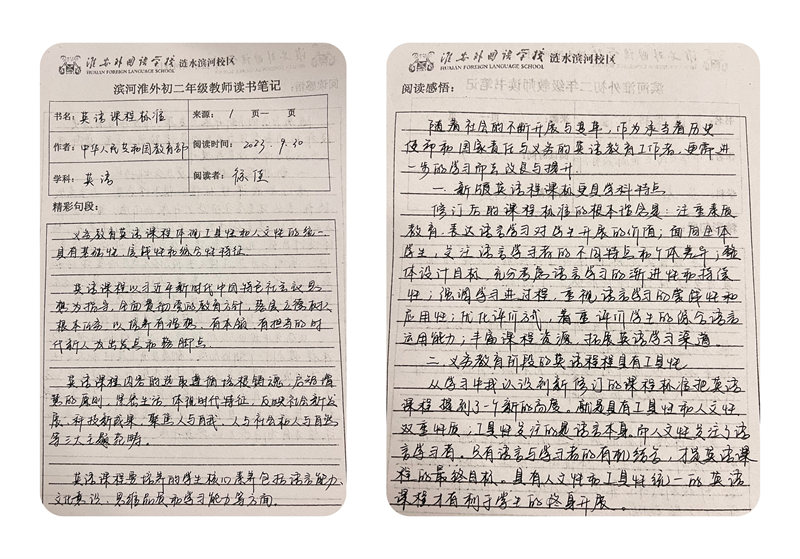 淮安外国语学校 涟水滨河校区
HUAIAN FOREIGN LANGUAGE SCHOOL
滨河淮外初二年级教师读书笔记
书名: 英语课程标准 来源: 1 页—页
作者: 中华人民共和国教育部 阅读时间: 2023.9.30
学科: 英语 阅读者: 徐
精彩句段:
义务教育英语课程体现工具性和人文性的统一,
具有基础性、实践性和综合性特征。
英语课程以习近平新时代中国特色社会主义思
想为指导,全面贯彻党的教育方针,落实立德树人
根本任务,以培养有理想、有本领、有担当的时
代新人为出发点和落脚点。
英语课程内容的选取遵循培根铸魂,启智增
慧的原则,紧密生活,体现时代特征,反映社会新发
展、科技新成果,聚焦人与自我、人与社会和人与自然
等三大主题范畴。
英语课程要培养的学生核心素养包括语言能力、
文化意识、思维品质和学习能力等方面。
淮安外国语学校 涟水滨河校区
HUAIAN FOREIGN LANGUAGE SCHOOL
阅读感悟:
随着社会的不断开展与变革,作为承担着历史
使命和国家责任与义务的英语教育工作者,更需进
一步的学习而去改良与提升.
一、新版英语程课标更具学科特点
修订后的课程标准的根本理念是:注重素质
教育,表达语言学习对学生开展的价值;面向全体
学生,关注语言学习者的不同特点和个体差异;整
体设计目标,充分考虑语言学习的渐进性和持续
性;强调学习进过程,重视语言学习的实践性和
应用性;优化评价方式,着重评价学生的综合语言
运用能力;丰富课程资源,拓展英语学习渠道。
二、义务教育阶段的英语程程具有工具性
从学习中我认识到新修订的课程标准把英语
课程提到了一个新的高度。即具有工具性和人文性
双重性质;工具性关注的是语言本身,而人文性关注了语
言学习者。只有语言与学习者的有机结合,才是英语课
程的最终目标。具有人文性和工具性统一的英语
课程才有利于学生的终身开展。